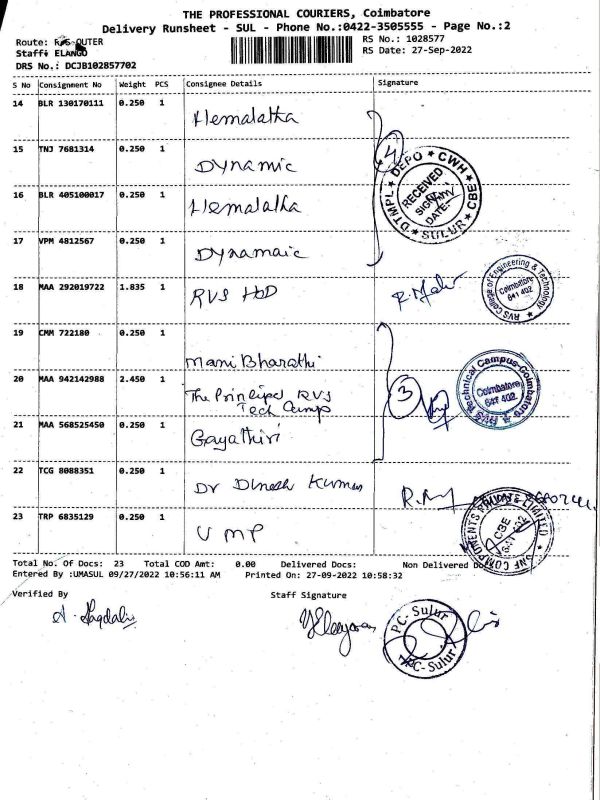 THE PROFESSIONAL COURIERS, Coimbatore
Delivery Runsheet - SUL - Phone No.:0422-3505555 - Page No.:2
Route: RVS OUTER
RS No.: 1028577
Staff: ELANGO
RS Date: 27-Sep-2022
DRS No.: DCJB102857702
S No Consignment No Weight PCS Consignee Details Signature
14 BLR 130170111 0.250 1 Hemalatha
15 TNJ 7681314 0.250 1 Dynamic
4
DTMPL * DEPO * CWH * CBE * SULUR *
RECEIVED
SIGN
DATE:
16 BLR 405100017 0.250 1 Hemalatha
17 VPM 4812567 0.250 1 Dynamaic
18 MAA 292019722 1.835 1 RVS HOD
RVS College of Engineering & Technology
Coimbatore
641 402.
19 CMM 722180 0.250 1 Mani Bharathi
20 MAA 942142988 2.450 1 The Principal RVS
Tech Camp
3
RVS Technical Campus-Coimbatore
Coimbatore
641 402.
21 MAA 568525450 0.250 1 Gayathiri
22 TCG 8088351 0.250 1 Dr Dinesh Kumar
23 TRP 6835129 0.250 1 UMP
SNF COMPONENTS PRIVATE LIMITED
CBE
Total No. Of Docs: 23 Total COD Amt: 0.00 Delivered Docs: Non Delivered
Entered By :UMASUL 09/27/2022 10:56:11 AM Printed On: 27-09-2022 10:58:32
Verified By Staff Signature
PC- Sulur
PC- Sulur